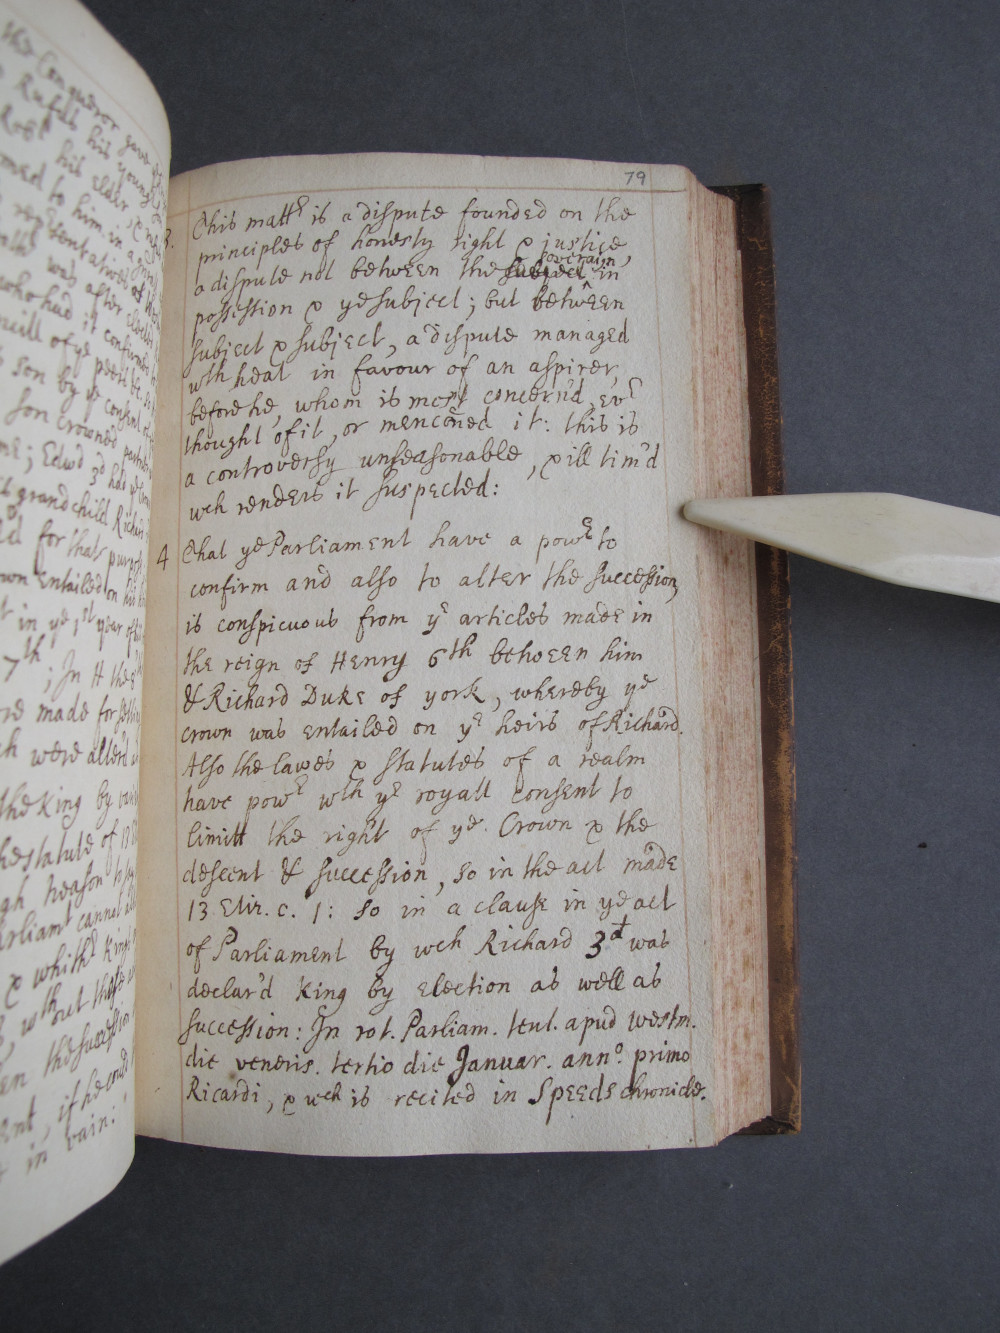 the Conqueror gave
Rufus his young
Robt his elder &
to him in a
representatives of
was after elected
who had it confirmed
will of ye peers &c. so
son by ye consent of ye
son crowned
; Edwd 3d had ye
grandchild Richard
for that purpose
own entailed on his
t in ye 1st year of
7th; In H the 8
made for
ch were alterd
the King by
he statute of 13
gh treason to
arliamt cannot
& whith Kings
, wthout the
en the succession
ent, if he could
t in vain:
79
3. This mattr is a dispute founded on the
principles of honesty right & justice,
a dispute not between the subject soveraign in
possession & ye subject; but between
subject & subject, a dispute managed
wth heat in favour of an aspirer,
before he, whom is most concern'd, evr
thought of it, or mencõned it: this is
a controversy unseasonable, & ill tim'd
wch renders it suspected:
4 That ye Parliament have a powr to
confirm and also to alter the succession,
is conspicuous from ye articles made in
the reign of Henry 6th between him
& Richard Duke of york, whereby ye
crown was entailed on ye heirs of Richard.
Also the lawes & statutes of a realm
have powr wth ye royall consent to
limitt the right of ye Crown & the
descent & succession, so in the act made
13 Eliz. c. 1: so in a clause in ye act
of Parliament by wch Richard 3d was
declar'd King by election as well as
succession: In rot. Parliam. tent. apud westm.
die veneris. tertio die Januar. anno. primo
Ricardi, & wch is recited in Speeds chronicle.